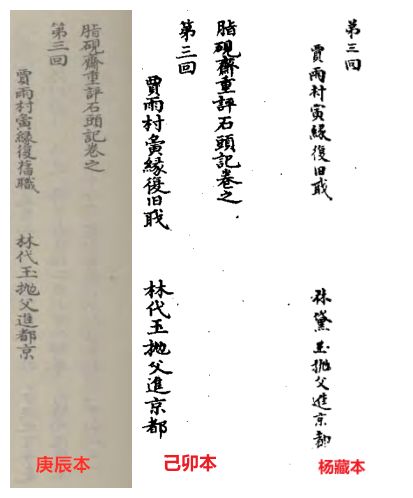 脂硯齋重評石頭記卷之
第三回
賈雨村夤緣復舊職
林代玉拋父進都京
庚辰本
脂硯齋重評石頭記卷之
第三回
賈雨村夤緣復旧職
林代玉拋父進京都
己卯本
第三回
賈雨村夤緣復旧職
林黛玉拋父進京都
杨藏本